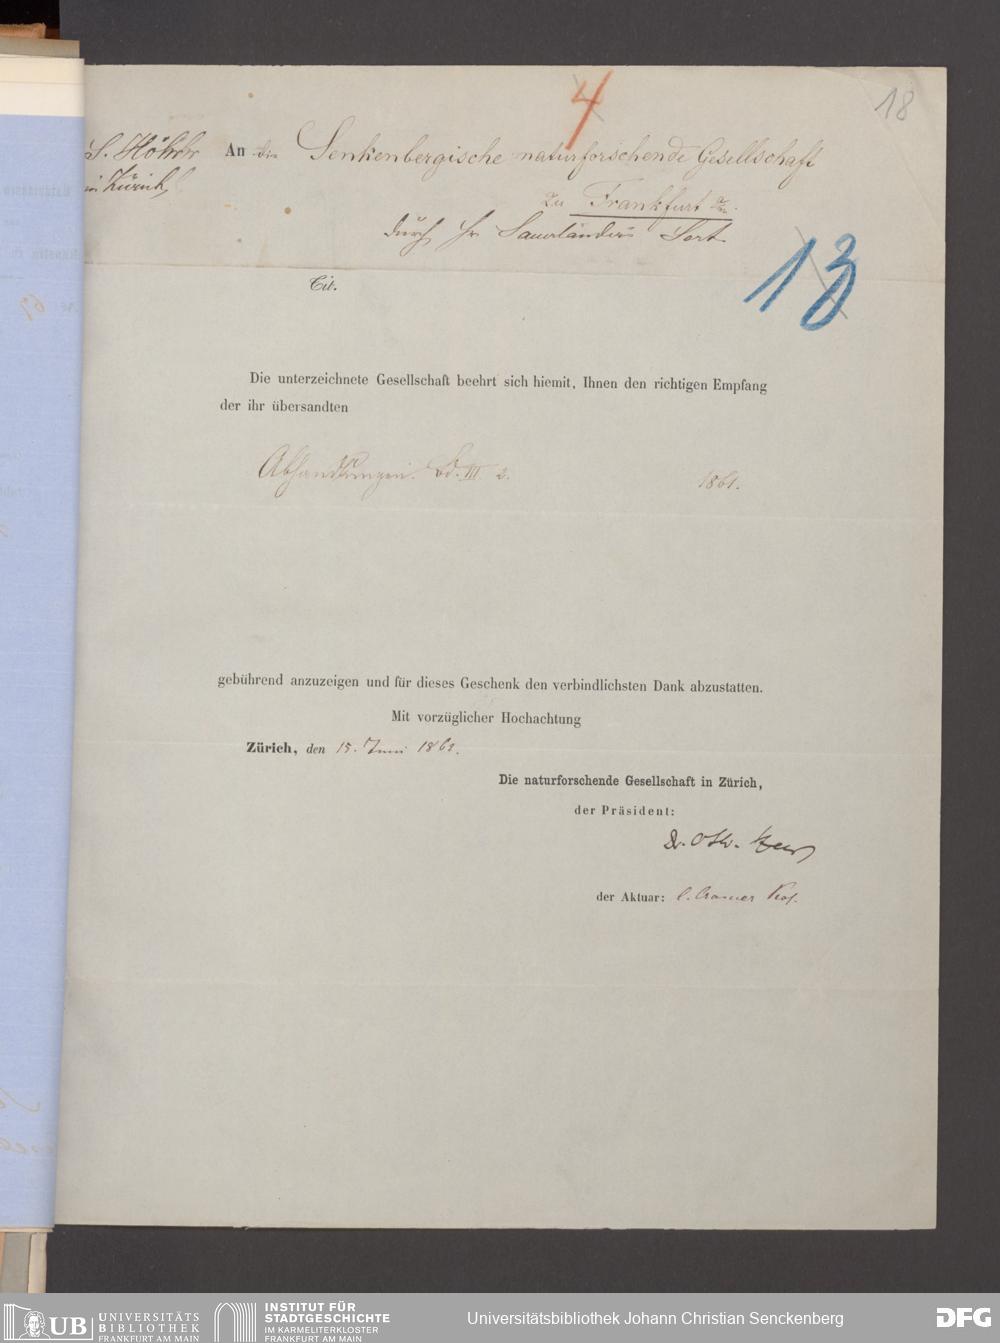 4
18
S. Höhr An die Senkenbergische naturforschende Gesellschaft
in Zürich
zu Frankfurt a/m.
durch Hr Sauerländers Sort.
13
Tit.
Die unterzeichnete Gesellschaft beehrt sich hiemit, Ihnen den richtigen Empfang
der ihr übersandten
Abhandlungen. Bd. III 2. 1861.
gebührend anzuzeigen und für dieses Geschenk den verbindlichsten Dank abzustatten.
Mit vorzüglicher Hochachtung
Zürich, den 15. Juni 1861.
Die naturforschende Gesellschaft in Zürich,
der Präsident:
Dr. Osw. Heer
der Aktuar: C. Cramer Prof.
UB UNIVERSITÄTS
BIBLIOTHEK
FRANKFURT AM MAIN
INSTITUT FÜR
STADTGESCHICHTE
IM KARMELITERKLOSTER
FRANKFURT AM MAIN
Universitätsbibliothek Johann Christian Senckenberg
DFG